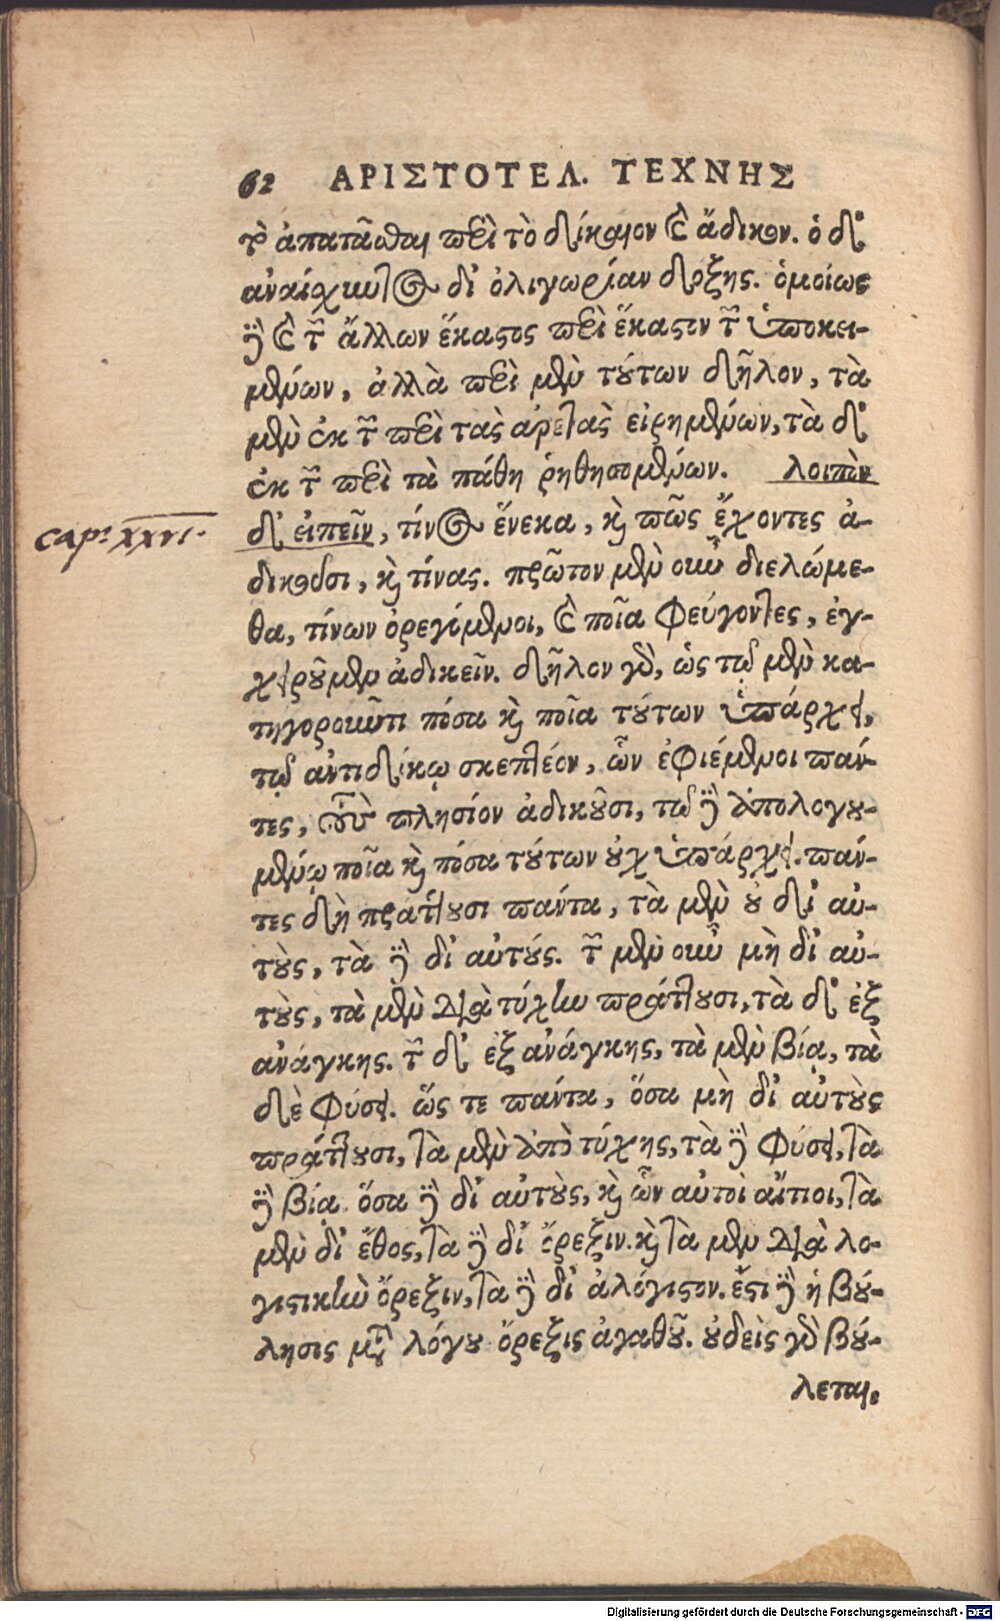 62 ΑΡΙΣΤΟΤΕΛ. ΤΕΧΝΗΣ
τῷ ἀπατᾶσθαι περὶ τὸ δίκαιον καὶ ἄδικον. ὁ δ'
ἀναίσχυντος δι' ὀλιγωρίαν δόξης. ὁμοίως
δὲ καὶ τῶν ἄλλων ἕκαστος περὶ ἕκαστον τῶν ὑποκει-
μένων, ἀλλὰ περὶ μὲν τούτων δῆλον, τὰ
μὲν ἐκ τῶν περὶ τὰς ἀρετὰς εἰρημένων, τὰ δ'
ἐκ τῶν περὶ τὰ πάθη ῥηθησομένων. λοιπὸν
cap. xxvi.
δ' εἰπεῖν, τίνος ἕνεκα, καὶ πῶς ἔχοντες ἀ-
δικοῦσι, καὶ τίνας. πρῶτον μὲν οὖν διελώμε-
θα, τίνων ὀρεγόμενοι, καὶ ποῖα φεύγοντες, ἐγ-
χειροῦμεν ἀδικεῖν. δῆλον γὰρ, ὡς τῷ μὲν κα-
τηγοροῦντι πόσα καὶ ποῖα τούτων ὑπάρχει,
τῷ ἀντιδίκῳ σκεπτέον, ὧν ἐφιέμενοι πάν-
τες, τοὺς πλησίον ἀδικοῦσι, τῷ δὲ ἀπολογου-
μένῳ ποῖα καὶ πόσα τούτων οὐχ ὑπάρχει. πάν-
τες δὴ πράττουσι πάντα, τὰ μὲν οὐ δι' αὐ-
τοὺς, τὰ δὲ δι' αὐτούς. τῶν μὲν οὖν μὴ δι' αὐ-
τοὺς, τὰ μὲν διὰ τύχην πράττουσι, τὰ δ' ἐξ
ἀνάγκης. τῶν δ' ἐξ ἀνάγκης, τὰ μὲν βίᾳ, τὰ
δὲ φύσει. ὥς τε πάντα, ὅσα μὴ δι' αὐτοὺς
πράττουσι, τὰ μὲν ἀπὸ τύχης, τὰ δὲ φύσει, τὰ
δὲ βίᾳ. ὅσα δὲ δι' αὐτοὺς, καὶ ὧν αὐτοὶ αἴτιοι, τὰ
μὲν δι' ἔθος, τὰ δὲ δι' ὄρεξιν. καὶ τὰ μὲν διὰ λο-
γιστικὴν ὄρεξιν, τὰ δὲ δι' ἀλόγιστον. ἔστι δὲ ἡ βού-
λησις μετὰ λόγου ὄρεξις ἀγαθοῦ. οὐδεὶς γὰρ βού-
λεται,
Digitalisierung gefördert durch die Deutsche Forschungsgemeinschaft - DFG